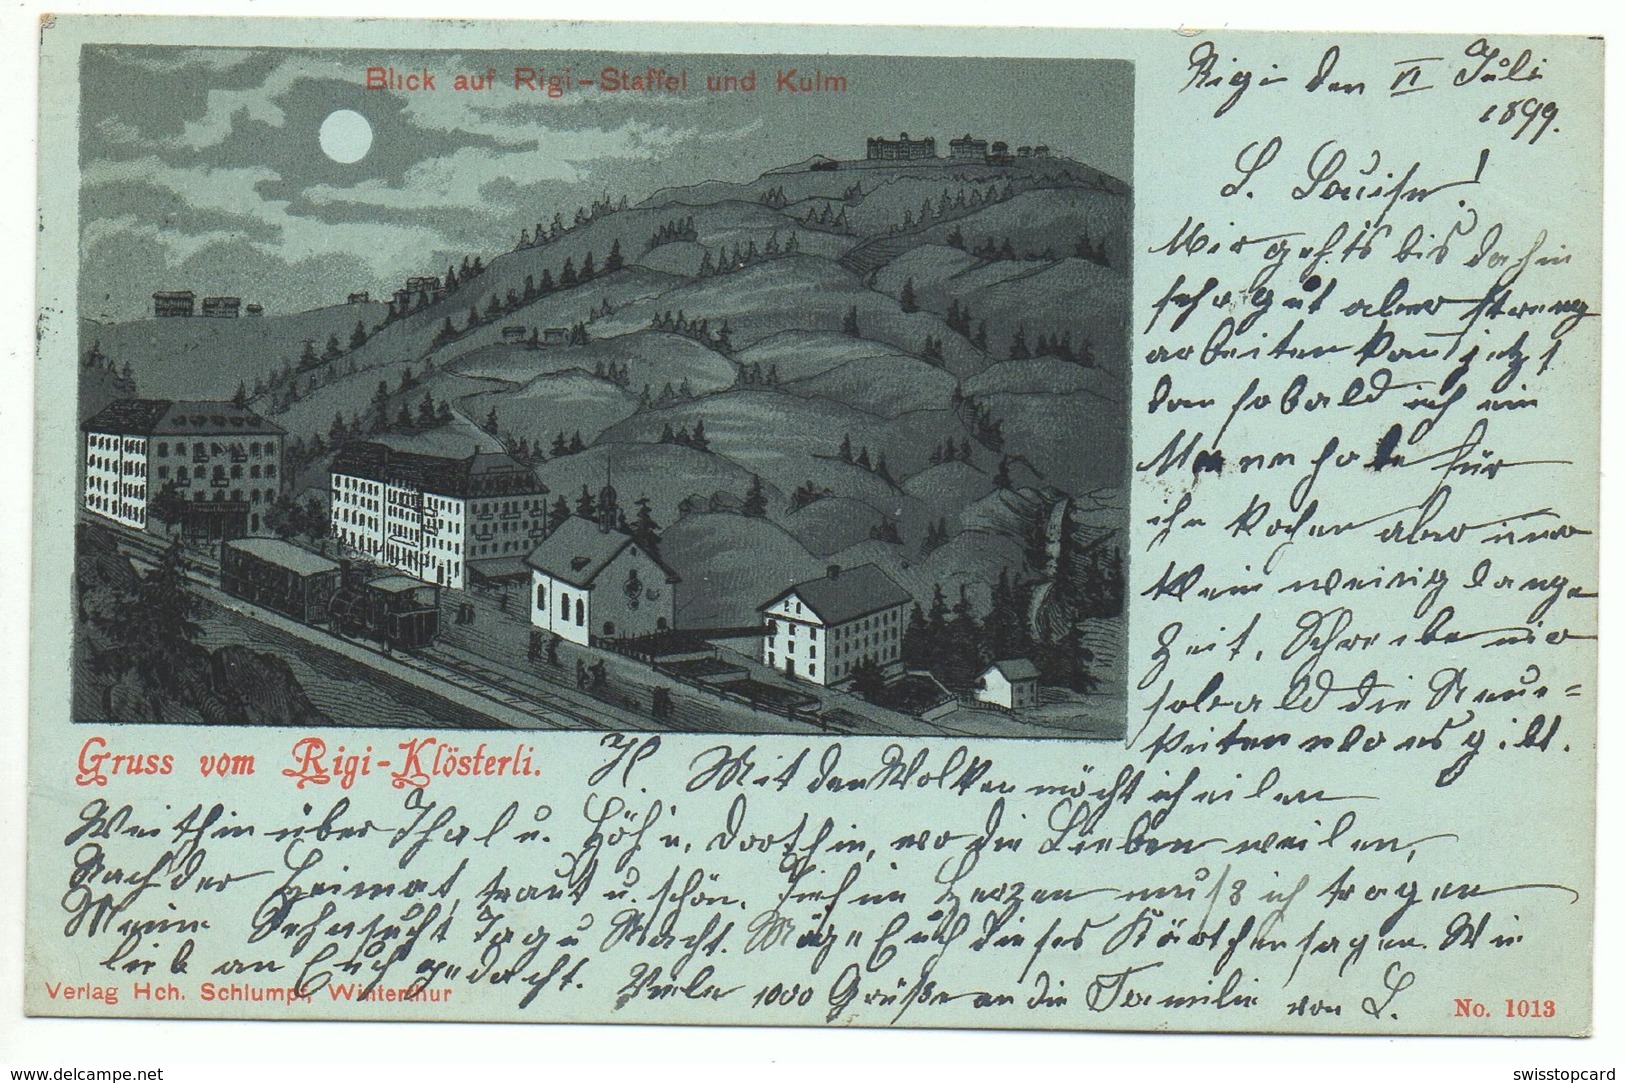 Blick auf Rigi-Staffel und Kulm
Rigi den VI Juli
1899.
L. Louise!
Mir gehts bis dahin
sehr gut aber streng
arbeiten kan jetzt
dan sobald ich ein
Mann habe für
ihn kochen aber
ein wenig lange
Zeit. Schreibe mir
sobald die Neuig=
keiten wo es gibt.
Gruss vom Rigi-Klösterli.
Mit den Wolken möcht ich eilen
Weithin über Thal u. Höh'n, dorthin, wo die Lieben weilen,
Nach der Heimat, traut u. schön. Tief im Herzen muß ich tragen
Meine Sehnsucht Tag u Nacht. Möge Euch dieses Kärtchen sagen. Wie
lieb an Euch gedacht. Viele 1000 Grüße an die Familie von L.
Verlag Hch. Schlumpf, Winterthur
No. 1013
delcampe.net
swisstopcard